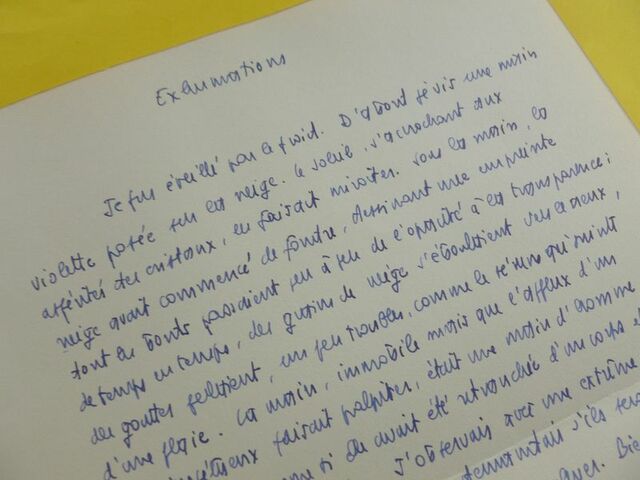 Exhumations
Je fus éveillé par le froid. D'abord je vis une main
violette posée sur la neige. Le soleil, s'accrochant aux
aspérités des cristaux, les faisait miroiter. Sous la main, la
neige avait commencé de fondre, dessinant une empreinte
dont les bords passaient peu à peu de l'opacité à la transparence ;
de temps en temps, des grains de neige s'éboulaient vers le creux,
des gouttes perlaient, un peu troubles, comme le sérum qui suinte
d'une plaie. La main, immobile mais que l'afflux d'un
faisait palpiter, était une main d'homme
si elle avait été retranchée d'un corps
J'observais avec une extrême
s'ils
Bie